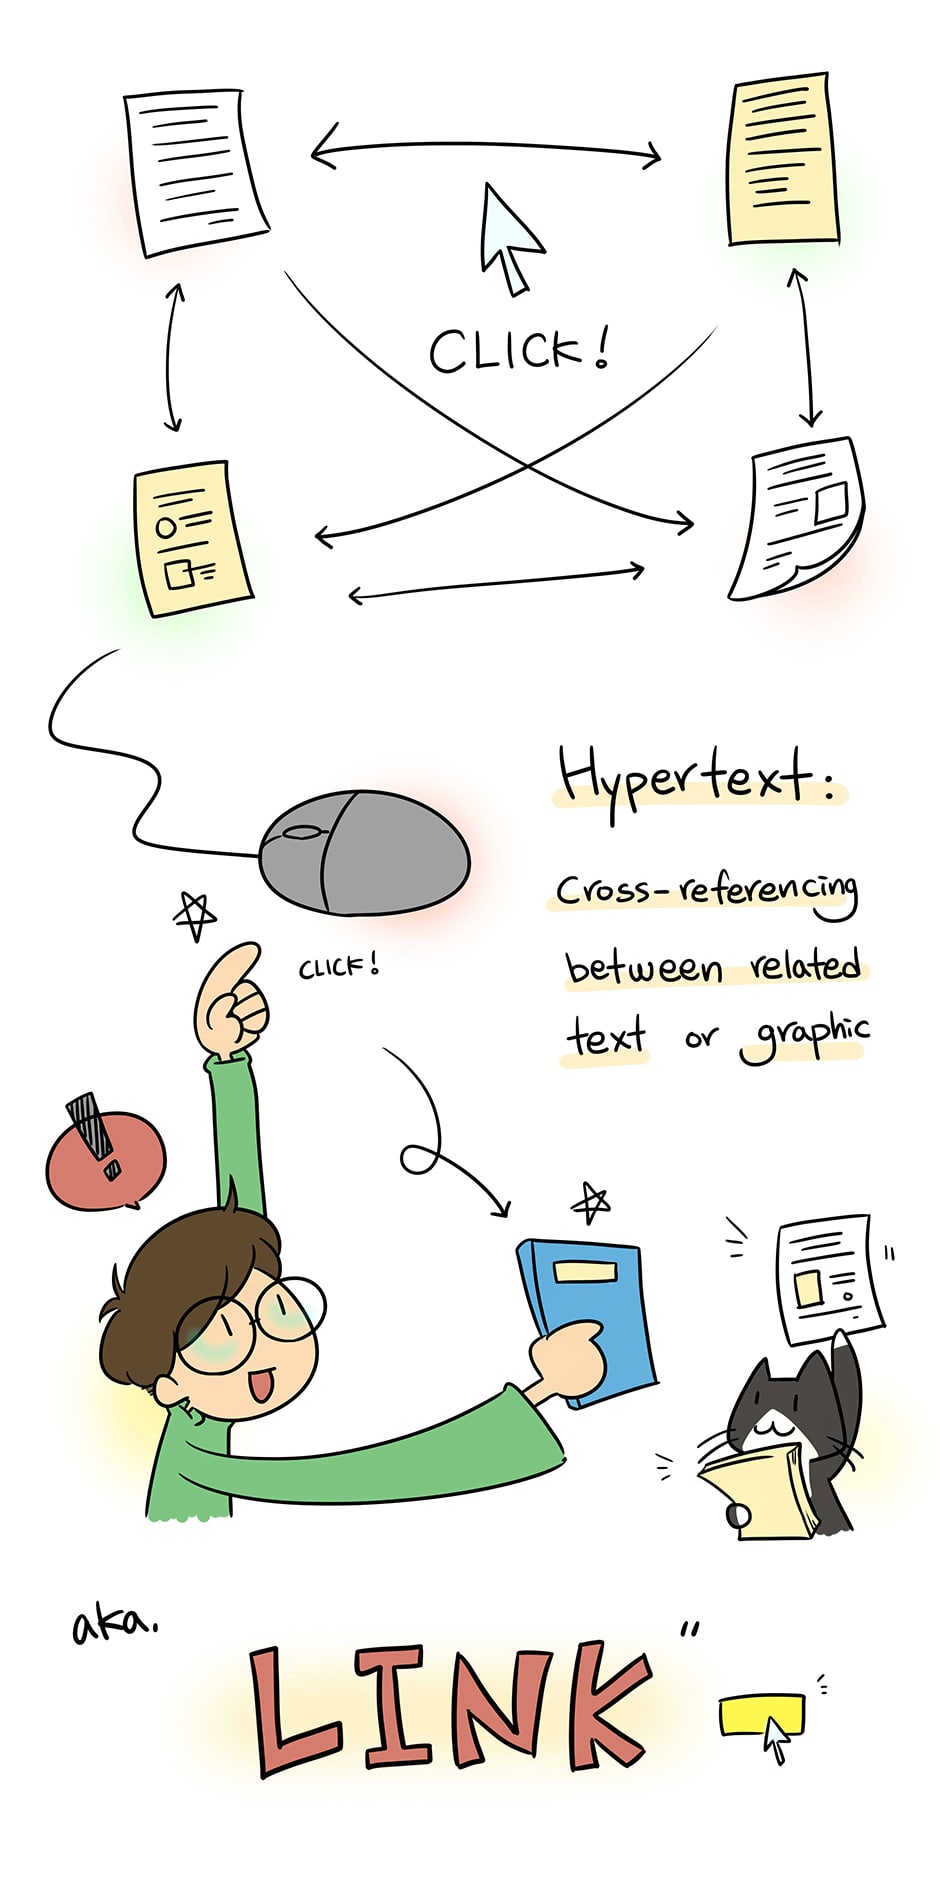 CLICK!
Hypertext:
Cross-referencing
between related
text or graphic
CLICK!
!
aka.
LINK